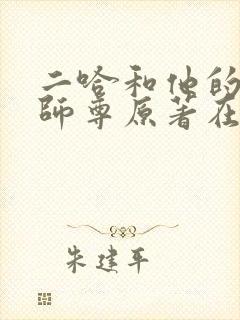 二哈和他的
师尊原著在
朱建平